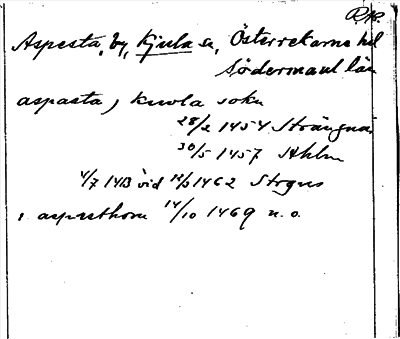 Aspesta, by, Kjula sn, Österrekarne hd
Södermanl län
aspasta, kwola sokn
28/2 1454 Strängnäs
30/5 1457 Sthlm
4/7 1413 vid 12/3 1462 Strgns
i aspesthom 14/10 1469 n. o.